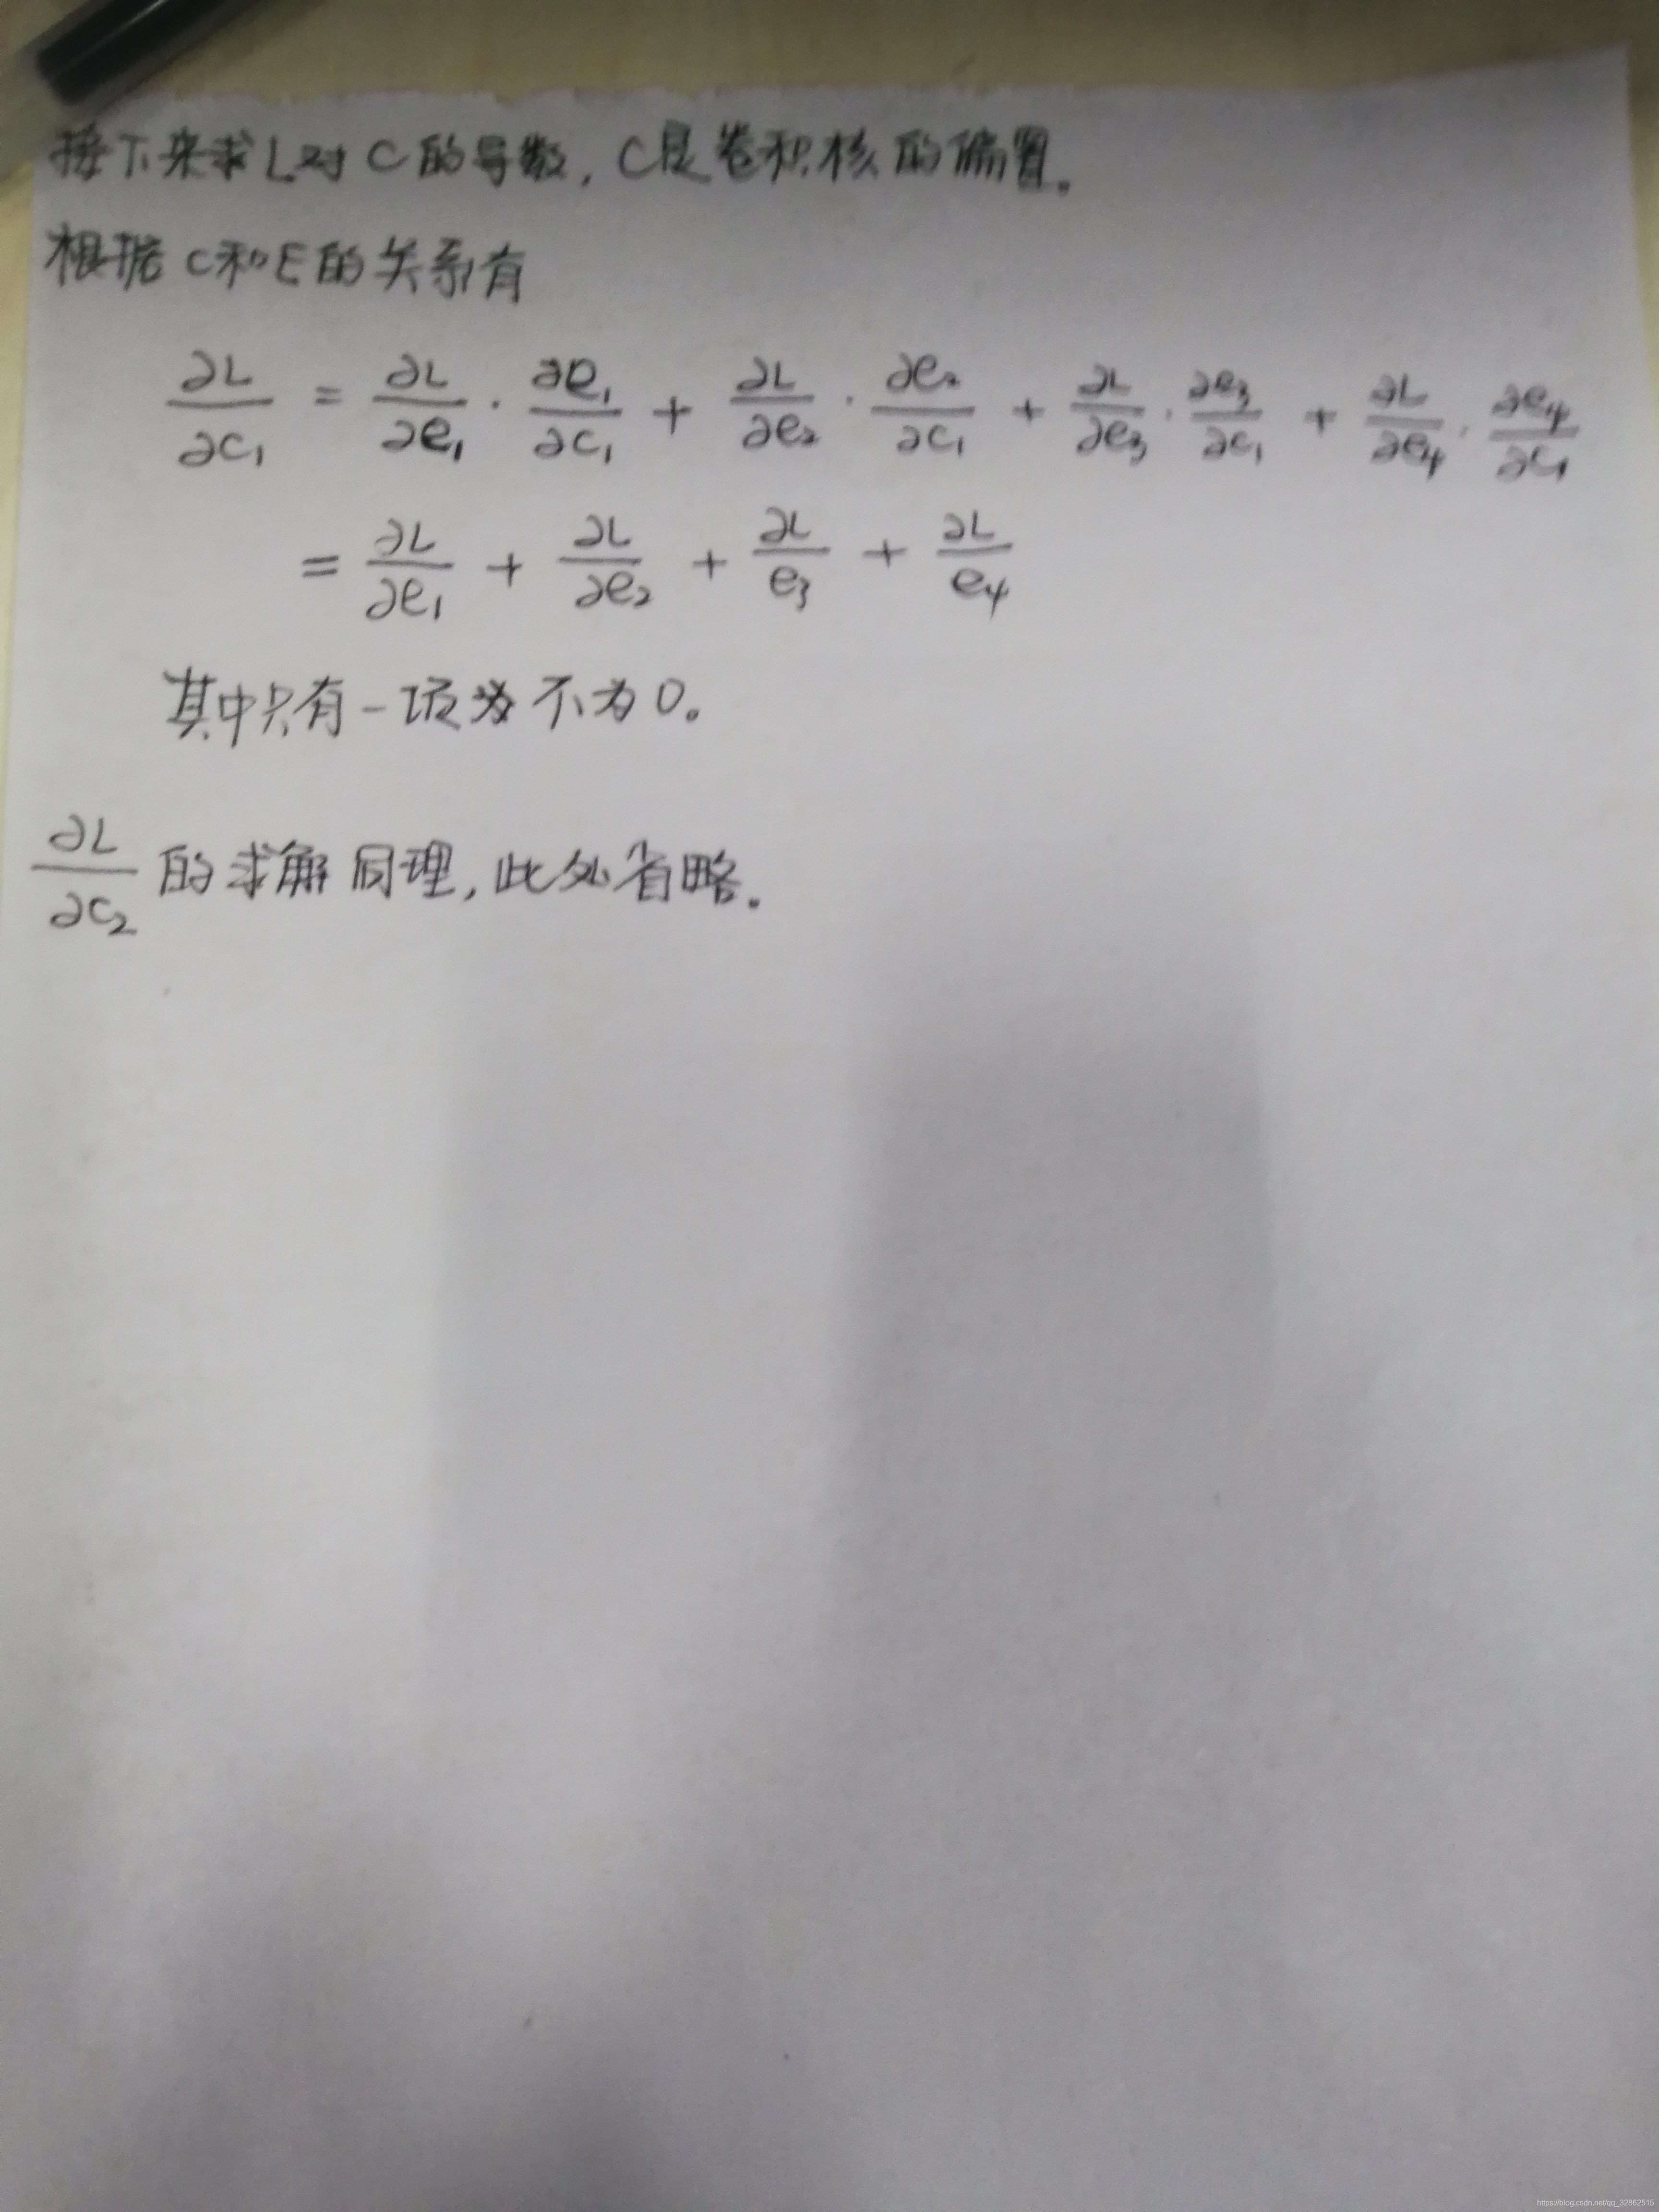 接下来求L对C的导数，C是卷积核的偏置。
根据C和E的关系有
∂L/∂c₁ = ∂L/∂e₁ · ∂e₁/∂c₁ + ∂L/∂e₂ · ∂e₂/∂c₁ + ∂L/∂e₃ · ∂e₃/∂c₁ + ∂L/∂e₄ · ∂e₄/∂c₁
= ∂L/∂e₁ + ∂L/∂e₂ + ∂L/e₃ + ∂L/e₄
其中只有一项为不为0。
∂L/∂c₂ 的求解同理，此处省略。
https://blog.csdn.net/qq_32862515